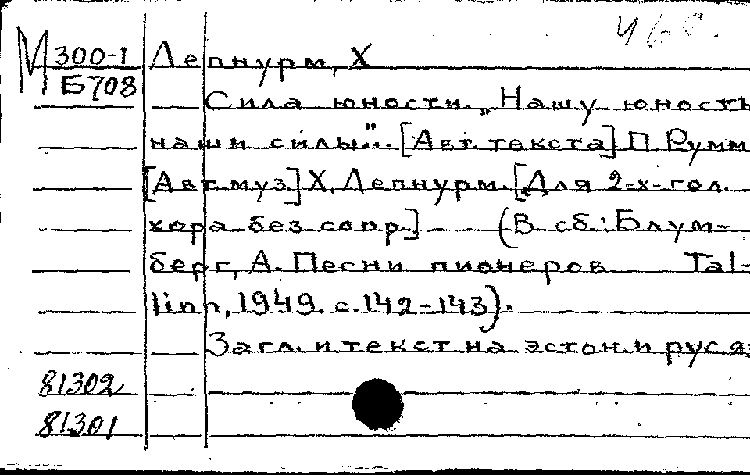 468.
М 300-1 Лепнурм, Х
Б708
Сила юности. „Нашу юность
наши силы“... [Авт. текста] П. Румм
[Авт. муз.] Х. Лепнурм. [Для 2-х-гол.
хора без сопр.] (В сб.: Блум-
берг, А. Песни пионеров Tal-
linn, 1949. с. 142-143).
Загл. и текст на эстон. и рус. яз
81302
81301